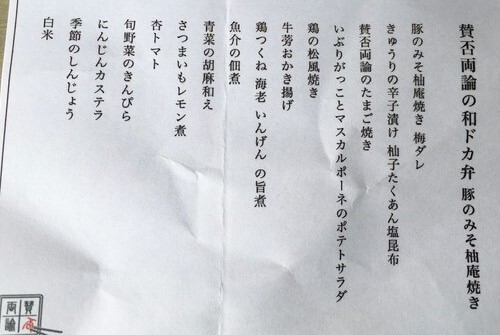 賛否両論の和ドカ弁 豚のみそ柚庵焼き
豚のみそ柚庵焼き 梅ダレ
きゅうりの辛子漬け 柚子たくあん塩昆布
賛否両論のたまご焼き
いぶりがっことマスカルポーネのポテトサラダ
鶏の松風焼き
牛蒡おかき揚げ
鶏つくね 海老 いんげん の旨煮
魚介の佃煮
青菜の胡麻和え
さつまいもレモン煮
杏トマト
旬野菜のきんぴら
にんじんカステラ
季節のしんじょう
白米
賛否
両論